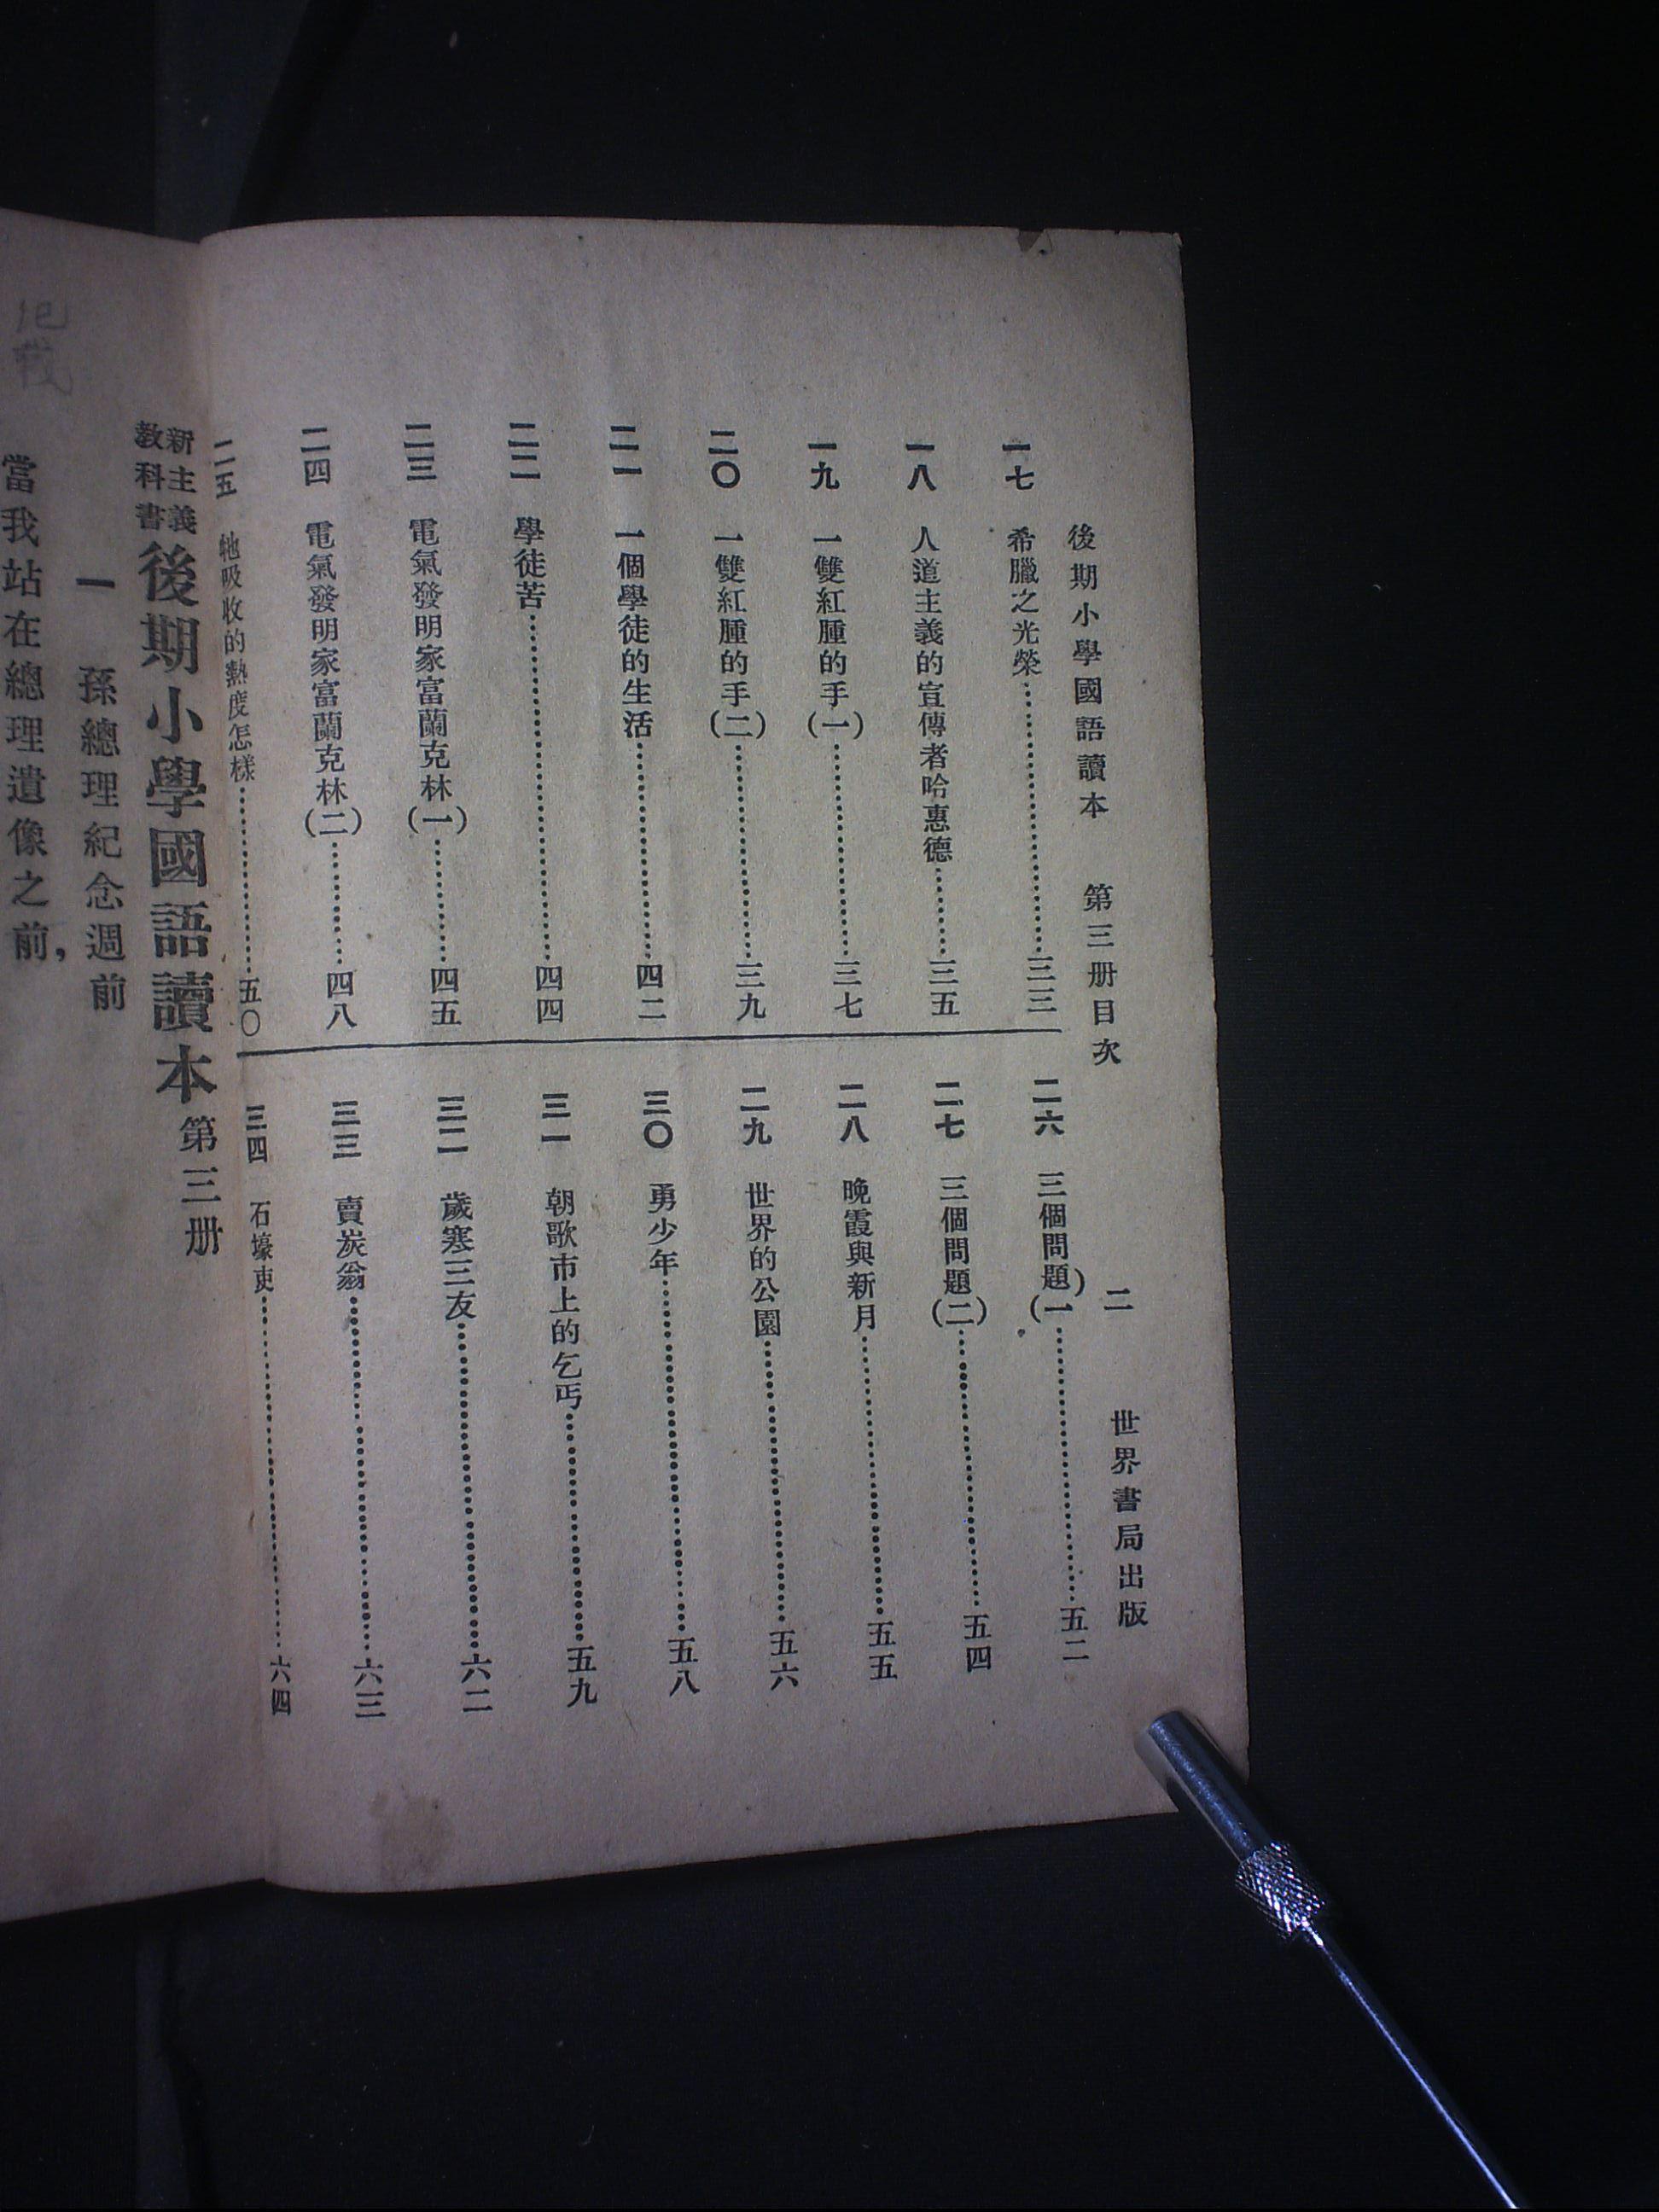 後期小學國語讀本　第三册目次　二　世界書局出版
一七　希臘之光榮…………三三
一八　人道主義的宣傳者哈惠德…………三五
一九　一雙紅腫的手(一)…………三七
二〇　一雙紅腫的手(二)…………三九
二一　一個學徒的生活…………四二
二二　學徒苦…………四四
二三　電氣發明家富蘭克林(一)…………四五
二四　電氣發明家富蘭克林(二)…………四八
二五　牠吸收的熱度怎樣…………五〇
二六　三個問題(一)…………五二
二七　三個問題(二)…………五四
二八　晚霞與新月…………五五
二九　世界的公園…………五六
三〇　勇少年…………五八
三一　朝歌市上的乞丐…………五九
三二　歲寒三友…………六二
三三　賣炭翁…………六三
三四　石壕吏…………六四
新主義
教科書
後期小學國語讀本第三册
一　孫總理紀念週前
當我站在總理遺像之前，